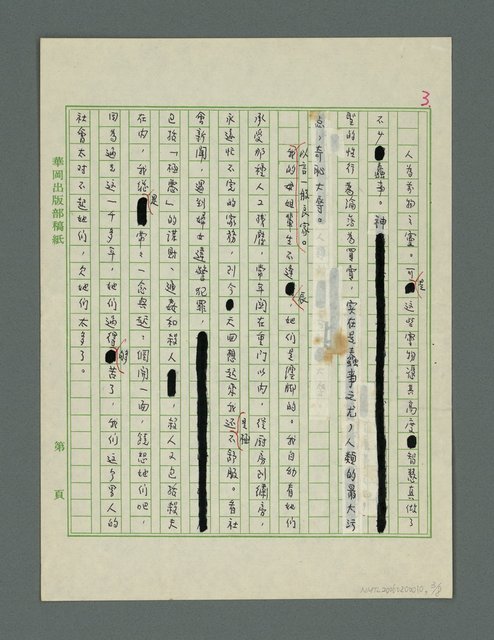 3.
人為萬物之靈。可是這些靈物憑其高度智慧真做了
不少蠢事。神
聖的性行為淪落為買賣,實在是蠢事之尤,人類的最大污
點,奇恥大辱。
以言一般良家。
我的姊姐輩生不逢辰,她們是纏腳的。我自幼看她們
承受那種人工殘廢,常年關在重門以內,從廚房到繡房,
永遠忙不完的家務,到今天回想起來我還是極不舒服。看社
會新聞,遇到婦女違警犯罪,
包括「極惡」的謀財、通姦和殺人,殺人又包括殺夫
在內,我總是常常一念無起:網開一面,饒恕她們吧,
因為過去這一千多年,她們過得夠苦了,我們這多男人的
社會太對不起她們,欠她們太多了。
華岡出版部稿紙
第 頁